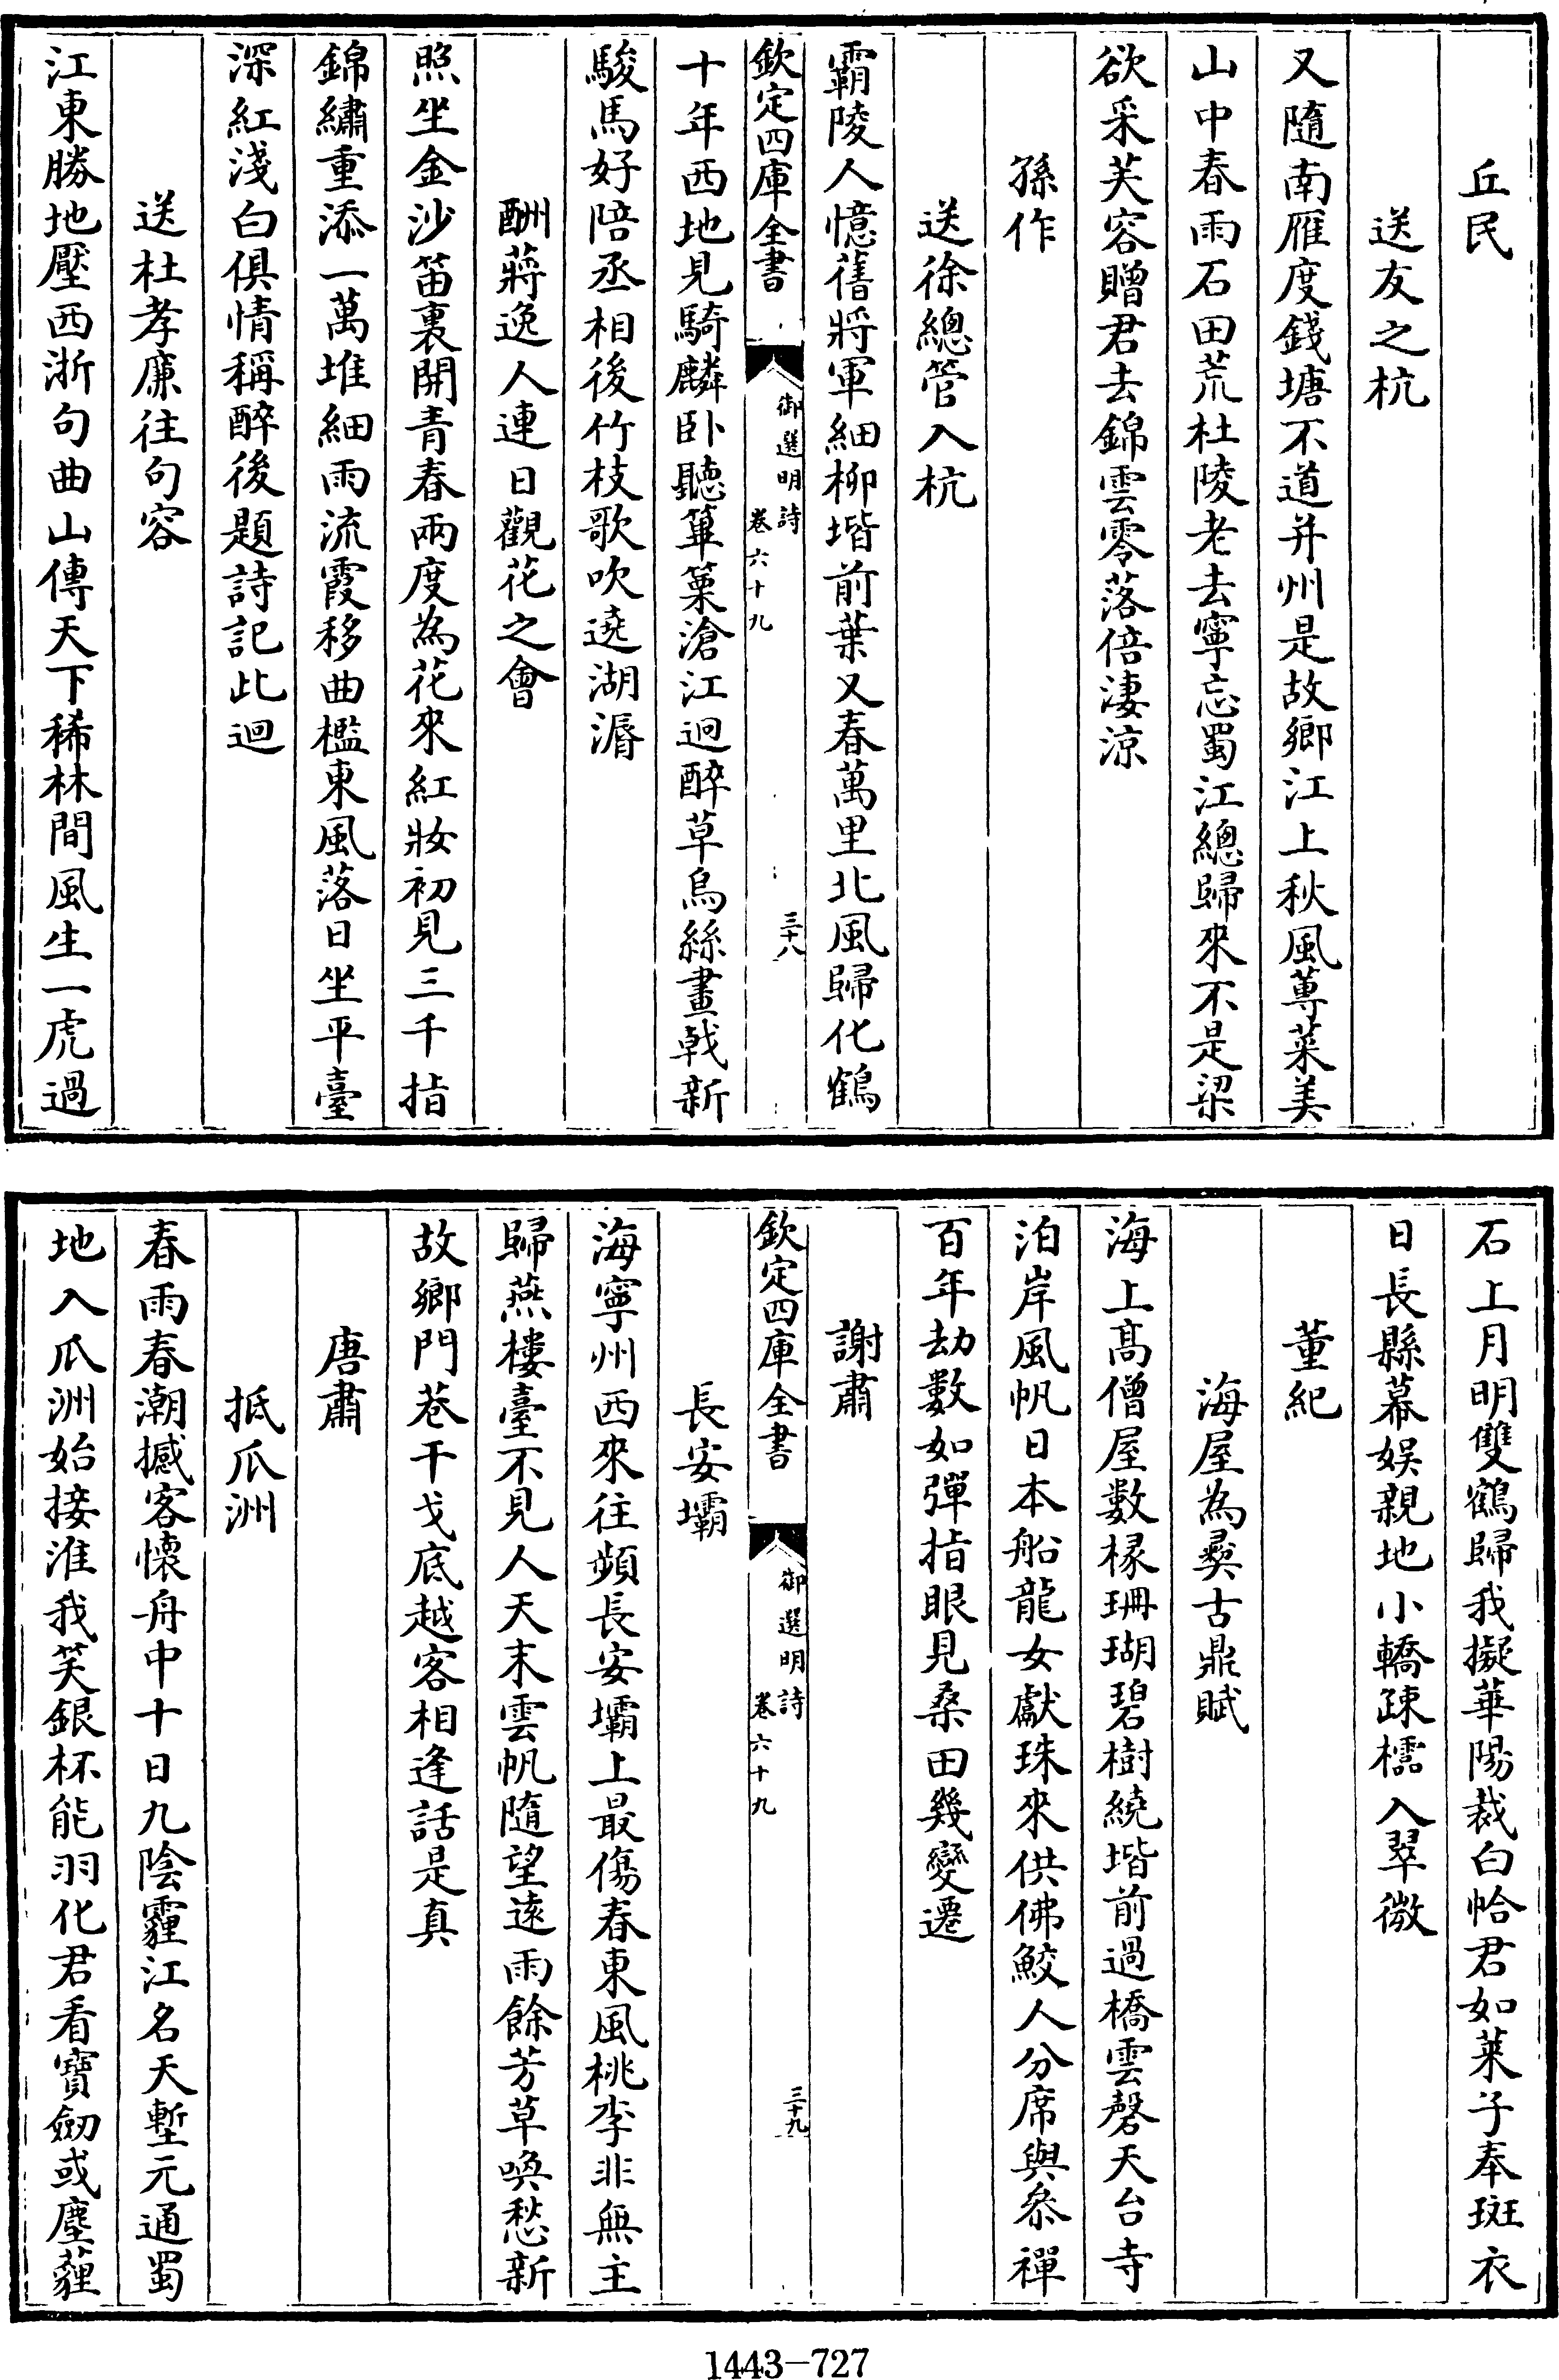 丘民
送友之杭
又隨南雁度錢塘不道并州是故鄉江上秋風蓴菜美
山中春雨石田荒杜陵老去寧忘蜀江總歸來不是梁
欲采芙容贈君去錦雲零落倍淒涼
孫作
送徐總管入杭
霸陵人憶舊將軍細柳堦前葉又春萬里北風歸化鶴
欽定四庫全書
御選明詩
卷六十九
三十八
十年西地見騎麟卧聽篳篥滄江迥醉草烏絲畫戟新
駿馬好陪丞相後竹枝歌吹遶湖漘
酬蔣逸人連日觀花之會
照坐金沙笛裏開青春兩度為花來紅妝初見三千指
錦繡重添一萬堆細雨流霞移曲檻東風落日坐平臺
深紅淺白俱情稱醉後題詩記此迴
送杜孝廉往句容
江東勝地壓西浙句曲山傳天下稀林間風生一虎過
石上月明雙鶴歸我擬華陽裁白帢君如萊子奉斑衣
日長縣幕娛親地小轎疎櫺入翠微
董紀
海屋為彛古鼎賦
海上髙僧屋數椽珊瑚碧樹繞堦前過橋雲磬天台寺
泊岸風帆日本船龍女獻珠來供佛鮫人分席與叅禪
百年劫數如彈指眼見桑田幾變遷
謝肅
欽定四庫全書
御選明詩
卷六十九
三十九
長安壩
海寧州西來往頻長安壩上最傷春東風桃李非無主
歸燕樓臺不見人天末雲帆隨望遠雨餘芳草喚愁新
故鄉門巷干戈底越客相逢話是真
唐肅
抵瓜洲
春雨春潮撼客懷舟中十日九陰霾江名天塹元通蜀
地入瓜洲始接淮我笑銀杯能羽化君看寶劒或塵薶
1443—727